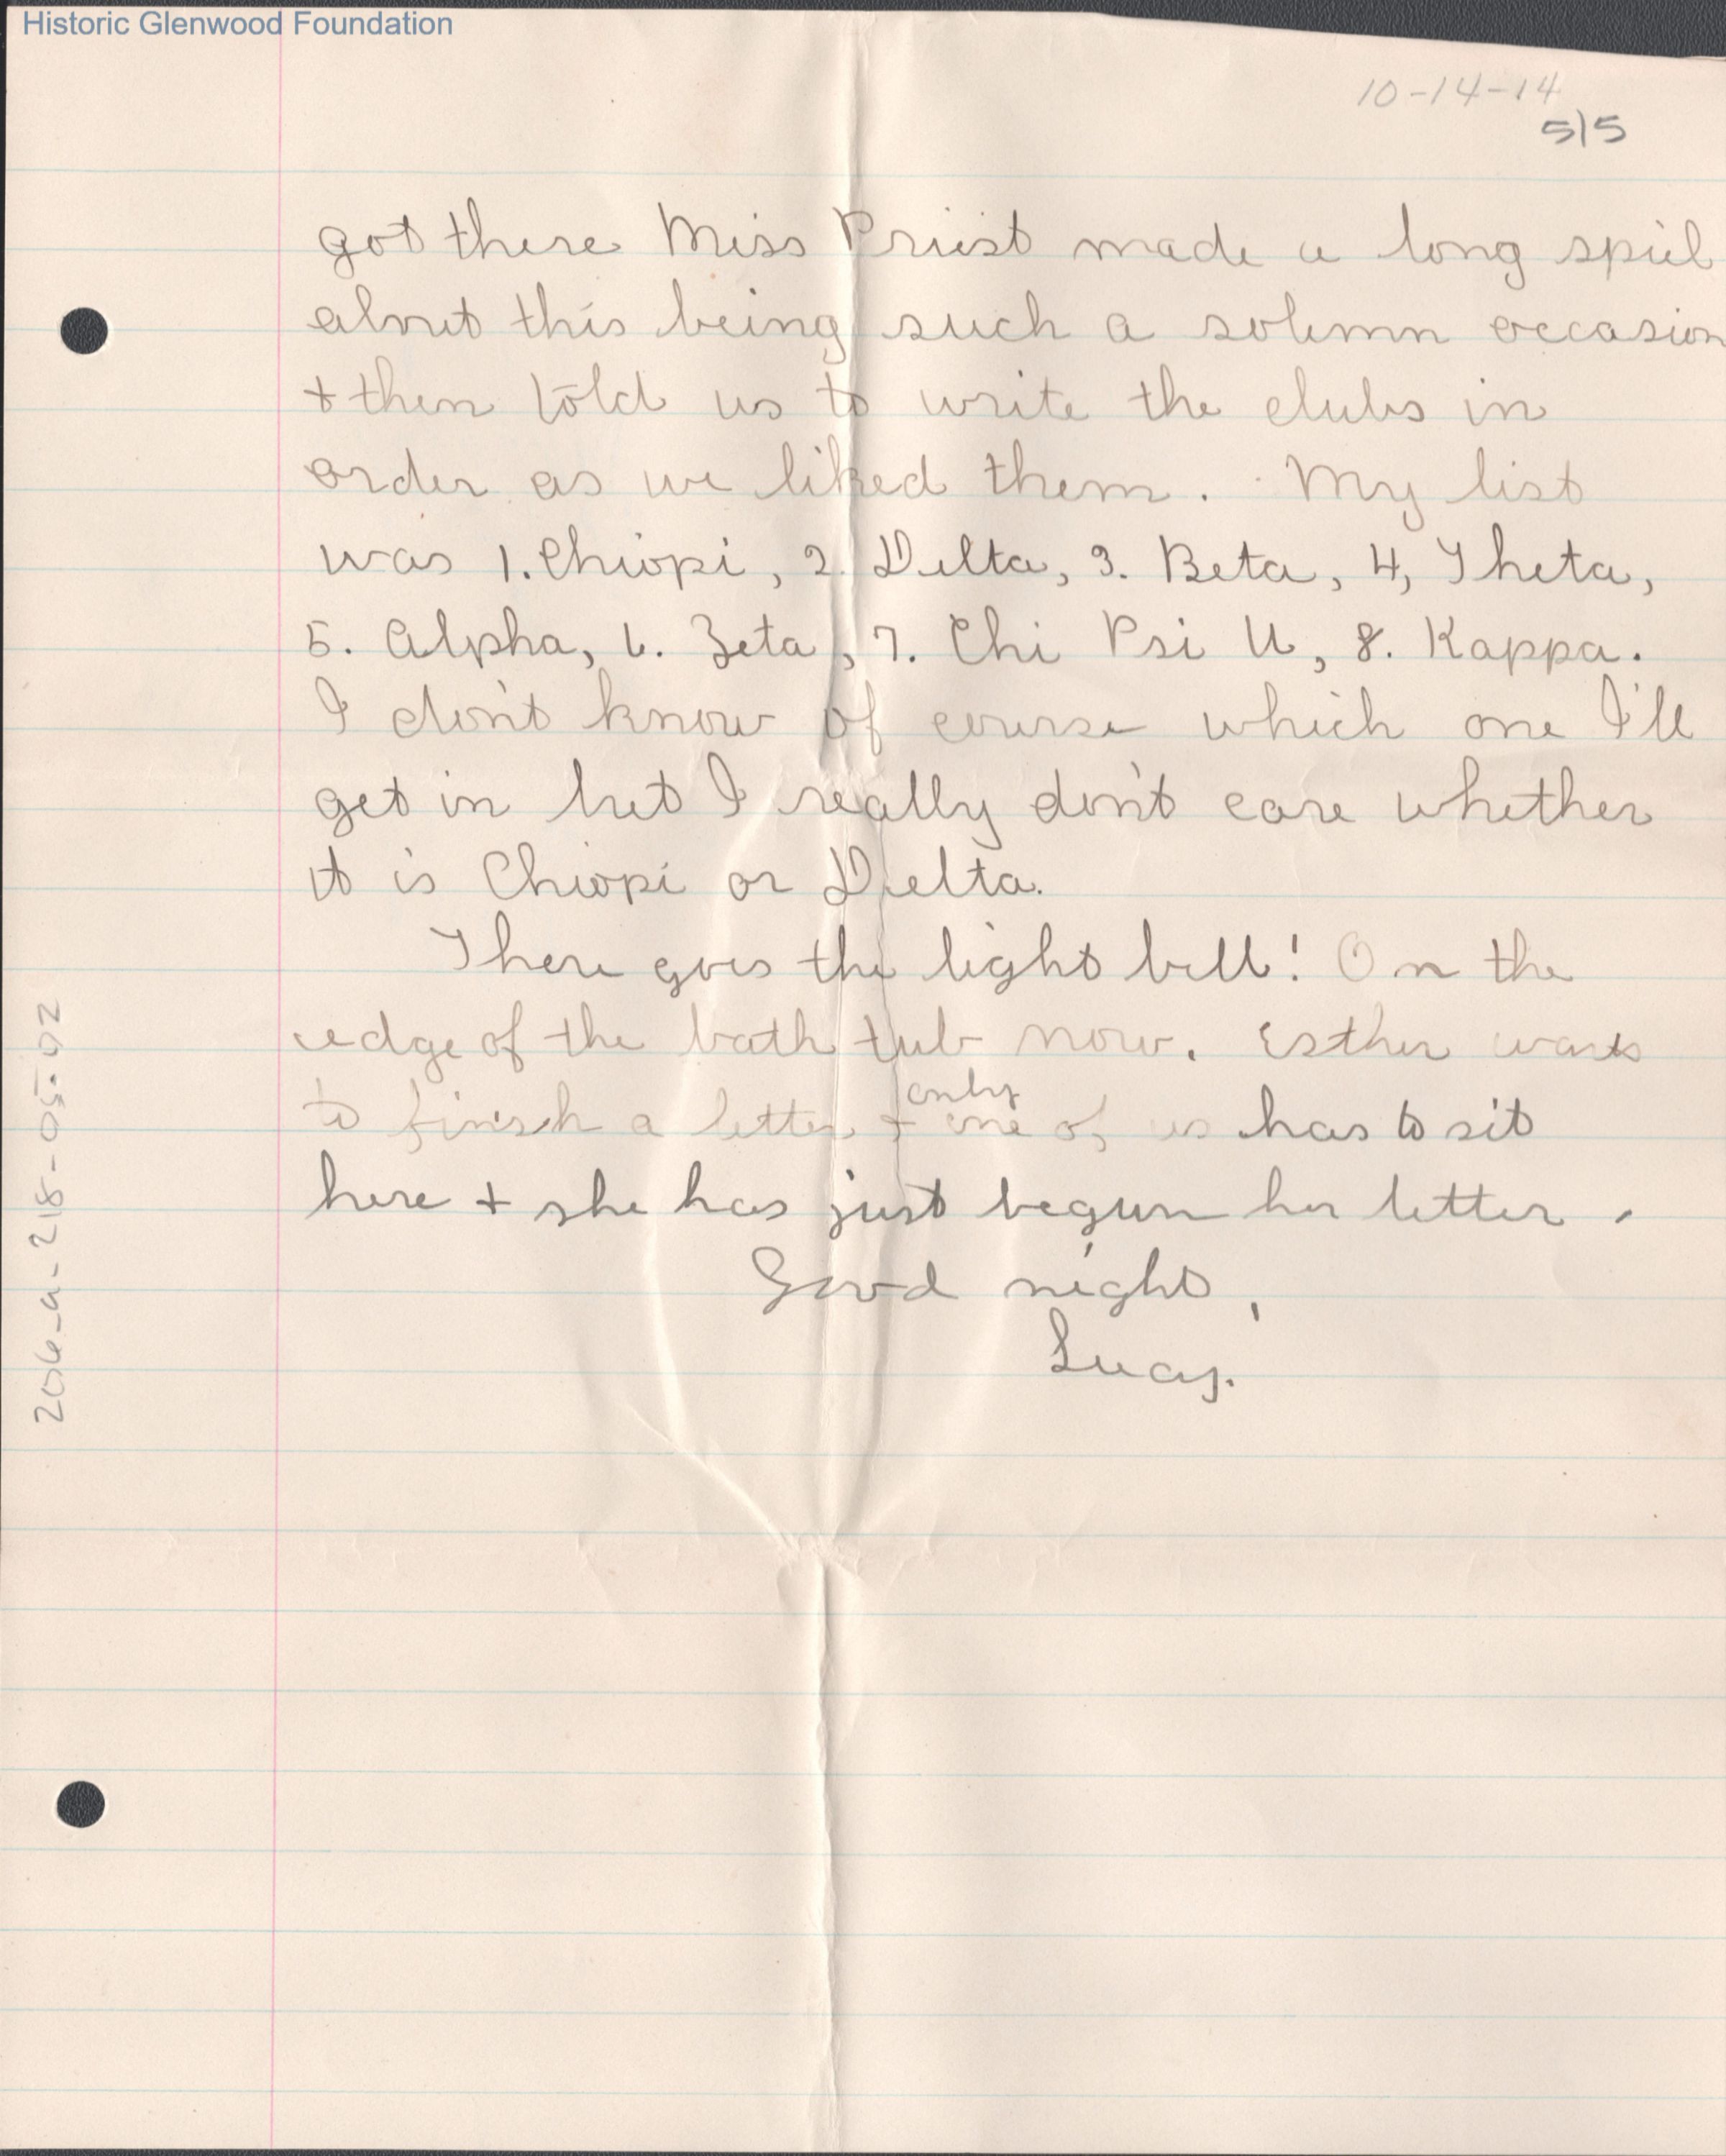 Historic Glenwood Foundation
10-14-14
5/5
got there Miss Priest made a long spiel
about this being such a solemn occasion
+ then told us to write the clubs in
order as we liked them. My list
was 1. Chiopi, 2. Delta, 3. Beta, 4, Theta,
5. Alpha, 6. Zeta, 7. Chi Psi U, 8. Kappa.
I don't know of course which one I'll
get in but I really don't care whether
it is Chiopi or Delta.
There goes the light bell! On the
edge of the bath tub now. Esther wants
to finish a letter + only one of us has to sit
here + she has just begun her letter.
Good night,
Lucy.
206-a-218-05-02